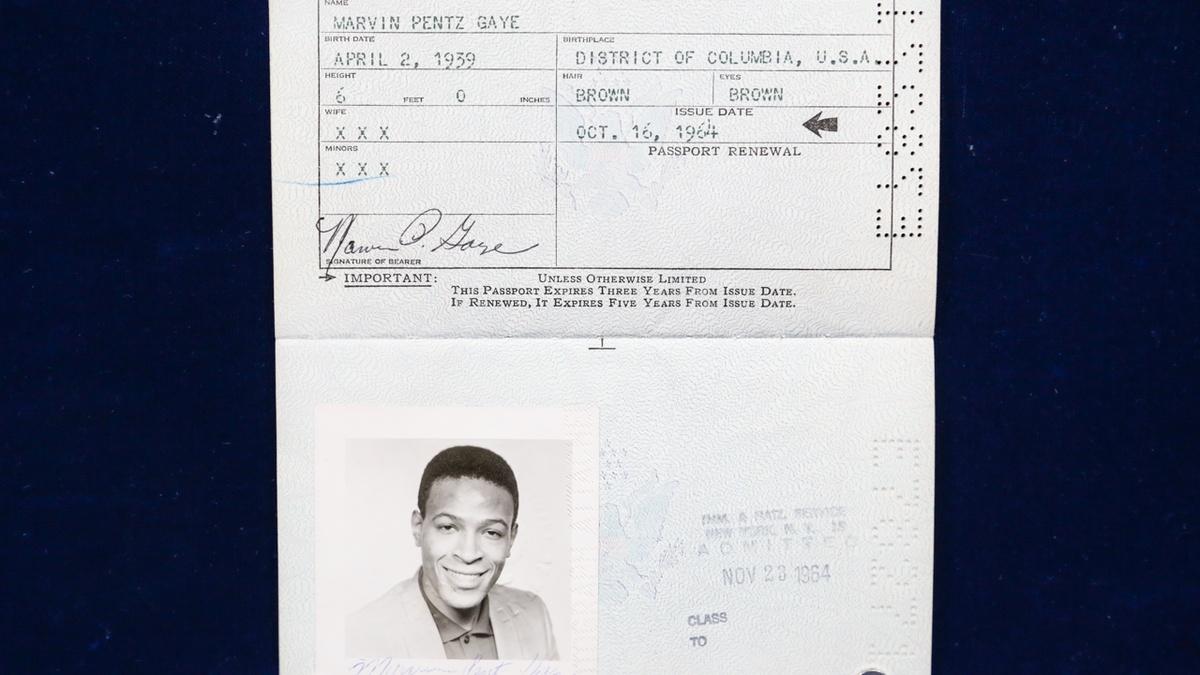 NAME
MARVIN PENTZ GAYE
BIRTH DATE
APRIL 2, 1939
BIRTHPLACE
DISTRICT OF COLUMBIA, U.S.A.
HEIGHT
6 FEET 0 INCHES
HAIR
BROWN
EYES
BROWN
WIFE
X X X
ISSUE DATE
OCT. 16, 1964
MINORS
X X X
PASSPORT RENEWAL
Marvin P. Gaye
SIGNATURE OF BEARER
IMPORTANT: UNLESS OTHERWISE LIMITED
THIS PASSPORT EXPIRES THREE YEARS FROM ISSUE DATE.
IF RENEWED, IT EXPIRES FIVE YEARS FROM ISSUE DATE.
1
IMM. & NATZ. SERVICE
NEW YORK, N. Y.
ADMITTED
NOV 23 1964
CLASS
TO